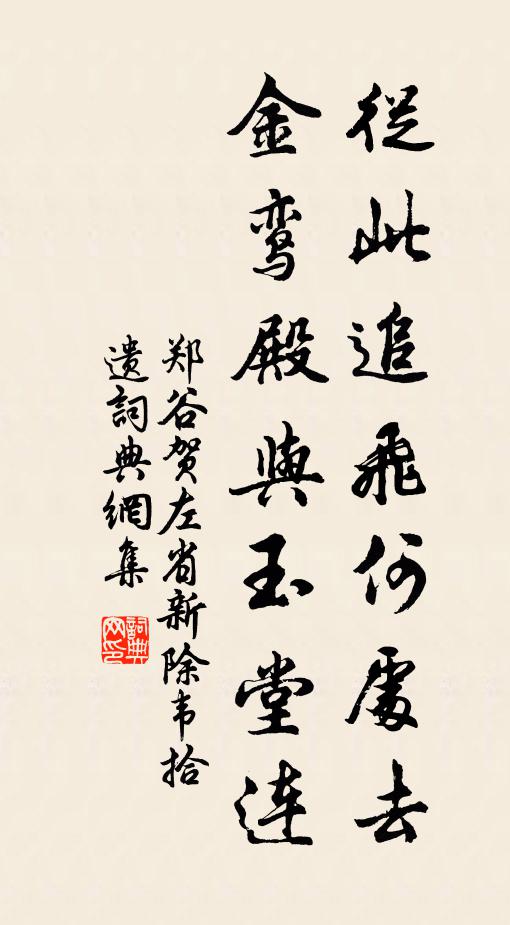 從此追飛何處去
金鸾殿與玉堂连
郑谷贺左省新除韦拾
遗詞典網集
詞典
网印